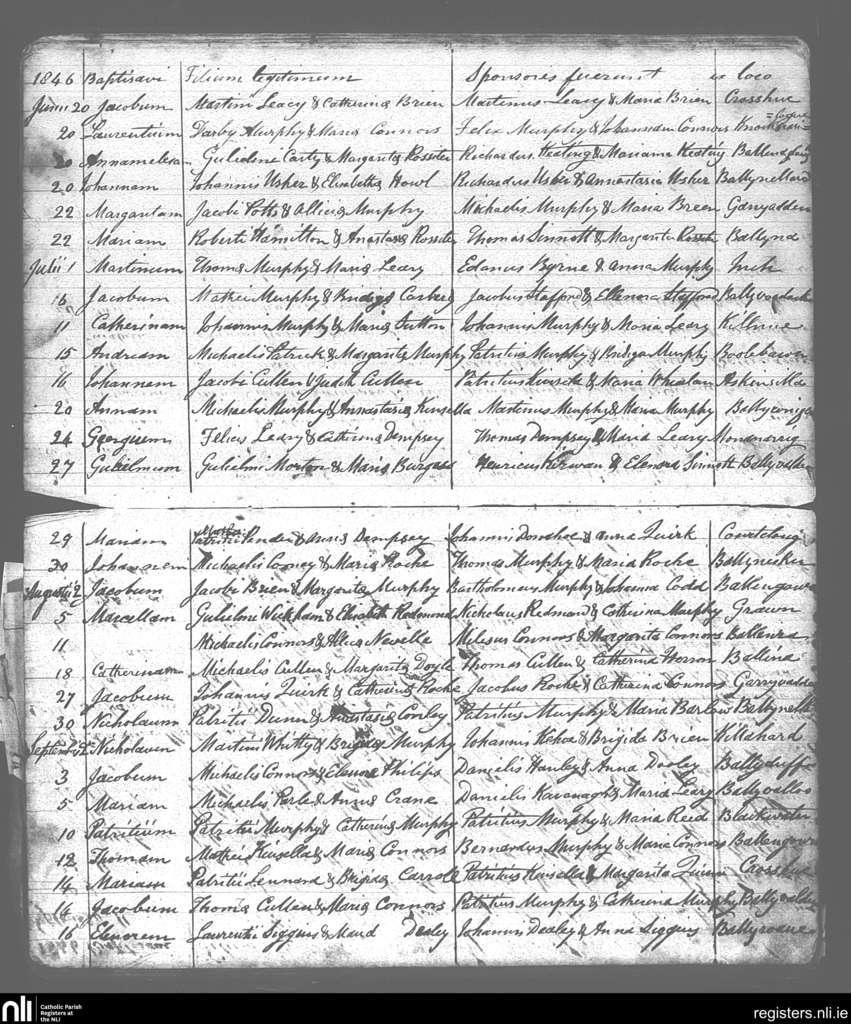 1846 Baptisavi Filium legitimum Sponsores fuerunt ex loco
Junii 20 Jacobum Martini Leacy & Catherina Brien Martinus Leacy & Maria Brien Crosshue
20 Laurentium Darby Murphy & Maria Connors Felix Murphy & Johannam Connors
20 Gulielmi Carty & Margarita Rossiter Richardus Keating & Mariama Keating
20 Johannam Johannis Usher & Elisabetha Howl Richardus Usher & Annastaria Usher Ballynellard
22 Margaritam Jacobi Potts & Allicia Murphy Michaelis Murphy & Maria Breen Garryadden
22 Mariam Roberti Hamilton & Anastasia Rossiter Thomas Sinnott & Margarita Rossiter
Julii 1 Martinum Thoma Murphy & Maria Leary Edanus Byrne & Anna Murphy Inch
16 Jacobum Mathei Murphy & Bridgt Carbery Jacobus Stafford & Ellenora Stafford
11 Catherinam Johannis Murphy & Maria Sutton Johannis Murphy & Maria Leary Killinue
15 Andream Michaelis Patrick & Margarita Murphy Patritius Murphy & Bridiga Murphy
16 Johannem Jacobi Cullen & Judith Cullen Patritius Kinsella & Maria Whealan
20 Annam Michaelis Murphy & Annastaria Kinsella Martinus Murphy & Maria Murphy
24 Georgium Felicis Leary & Catherina Dempsey Thomas Dempsey & Maria Leary
27 Gulielmum Gulielmi Morton & Maria Burgess Henricus Kirwan & Elenora Sinnott Ballyvalden
29 Mariam Pender & Anna Dempsey Johannis Donohoe & Anna Quirk
30 Johannem Michaelis Cooney & Maria Roche Thomas Murphy & Maria Roche
Augusti 2 Jacobum Jacobi Brien & Margarita Murphy Bartholomeus Murphy & Johanna Codd Ballingowe
5 Marcellam Gulielmi Wickham & Elisabeth Redmond Nicholaus Redmond & Catherina Murphy Grawn
11 Michaelis Connors & Alicia Neville Milesius Connors & Margarita Connors
18 Catherinam Michaelis Cullen & Margarita Doyle Thomas Cullen & Catherina Horron Ballina
27 Jacobum Johannis Quirk & Catherina Roche Jacobus Roche & Catherina Connors Garryvadden
30 Nicholaum Patritii Dunn & Anastasia Conley Patritius Murphy & Maria Barlow
Septembris 2 Nicholaum Martini Whitty & Brigida Murphy Johannis Kehoe & Brigida Brien Killahard
3 Jacobum Michaelis Connors & Elenora Philips Danielis Hanley & Anna Dooley Ballyduffe
5 Mariam Michaelis Perle & Anna Crane Danielis Kavanagh & Maria Leary Ballyvalloo
10 Patritium Patritii Murphy & Catherina Murphy Patritius Murphy & Maria Reed Blackwater
12 Thomam Mathei Kinsella & Maria Connors Bernardus Murphy & Maria Connors Ballengowe
14 Mariam Patritii Lennard & Brigida Carroll Patritius Kinsella & Margarita Quinn Crosshue
14 Jacobum Thoma Cullen & Maria Connors Patritius Murphy & Catherina Murphy Ballyvalden
16 Elenorem Laurentii Siggins & Maria Dealy Johannis Dealey & Anna Siggins Ballyroane
nli Catholic Parish Registers at the NLI
registers.nli.ie